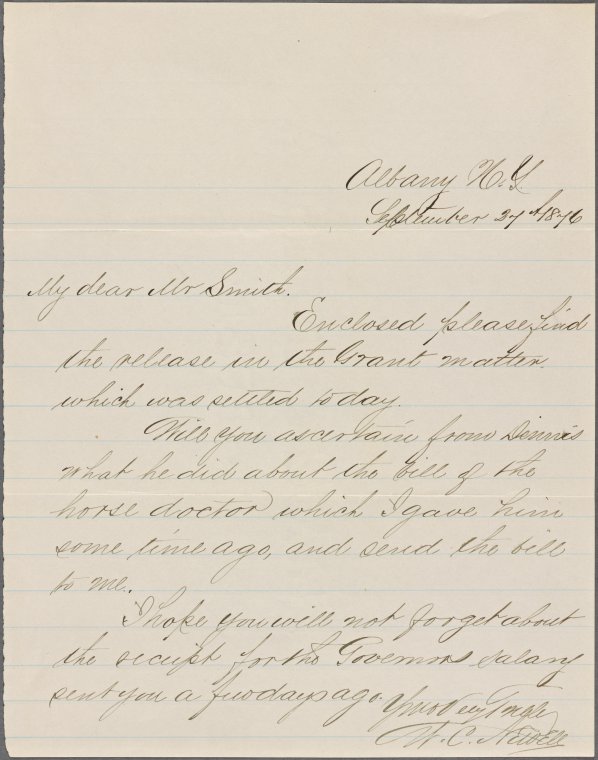 Albany N. Y.
September 27th 1876
My dear Mr Smith.
Enclosed please find
the release in the Grant matter.
which was settled to day.
Will you ascertain from Dinnis
what he did about the bill of the
horse doctor which I gave him
some time ago, and send the bill
to me.
I hope you will not forget about
the reciept for the Governors salary
sent you a few days ago.
Yours Very Truly
W. C. Newell